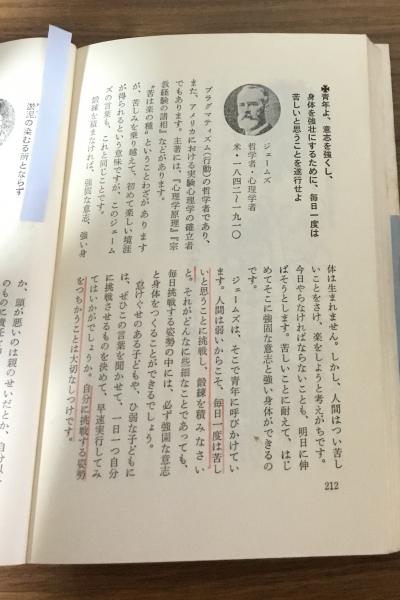 ✠青年よ、意志を強くし、
身体を強壮にするために、毎日一度は
苦しいと思うことを遂行せよ
ジェームズ
哲学者・心理学者
米・一八四二〜一九一〇
プラグマティズム(行動)の哲学者であり、
また、アメリカにおける実験心理学の確立者
でもあります。主著には、『心理学原理』『宗
教経験の諸相』などがあります。
〝苦は楽の種〟ということわざがあります
が、苦しみを乗り越えて、初めて楽しい境涯
が得られるという意味ですが、このジェーム
ズの言葉も、これと同じことです。
鍛練を積まなければ、強固な意志、強い身
体は生まれません。しかし、人間はつい苦し
いことをさけ、楽をしようと考えがちです。
今日やらなければならないことも、明日に伸
ばそうとします。苦しいことに耐えて、はじ
めてそこに強固な意志と強い身体ができるの
です。
ジェームズは、そこで青年に呼びかけてい
ます。人間は弱いからこそ、毎日一度は苦し
いと思うことに挑戦し、鍛練を積みなさい
と。それがどんなに些細なことであっても、
毎日挑戦する姿勢の中には、必ず強固な意志
と身体をつくることができるでしょう。
怠けぐせのある子どもや、ひ弱な子どもに
は、ぜひこの言葉を聞かせて、一日一つ自分
に挑戦させるものを決めて、早速実行してみ
てはいかがでしょうか。自分に挑戦する姿勢
をつちかうことは大切なしつけです。
212
淤泥の染むる所とならず
か、頭が悪いのは親のせいだとか、自分以